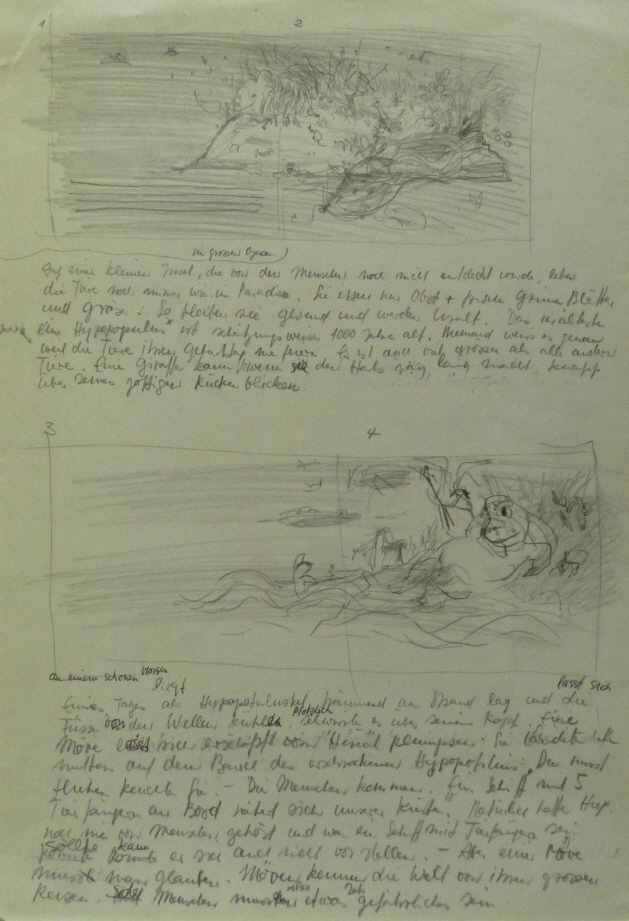 1 2
im grossen Ozean
Auf einer kleinen Insel, die von den Menschen noch nicht entdeckt wurde, leben
die Tiere noch immer wie im Paradies. Sie essen nur Obst + frische Grüne Blätter
und Gräser. So bleiben sie gesund und werden uralt. Das uralteste
ein Hypopopulus ist schätzungsweise 1000 Jahre alt. Niemand weiss es genau
weil die Tiere ihren Geburtstag nie feiern. Es ist auch viel grösser als alle andern
Tiere. Eine Giraffe kann, wenn sie den Hals ganz lang macht, knapp
über seinen zottigen Rücken blicken.
3 4
an einem schönen Morgen
liegt passt sich
Eines Tages als träumend am Strand lag und die
Füsse von den Wellen plötzlich es über seinem Kopf. Eine
Möve sich erschöpft vom Himmel plumpsen. Sie landete
mitten auf dem Bauch des erschrockenen Du musst
fliehen keuchte sie. – Die Menschen kommen. Ein Schiff mit 5
Tierfängern an Bord nähert sich unserer Küste. Natürlich hatte Hyp.
noch nie von Menschen gehört und was ein Schiff mit Tierfängern sein
sollte kann
konnte er sich auch nicht vorstellen. – Aber einer Möve
musste man glauben. Möven kennen die Welt von ihren grossen
Reisen. Menschen mussten etwas sehr gefährliches sein